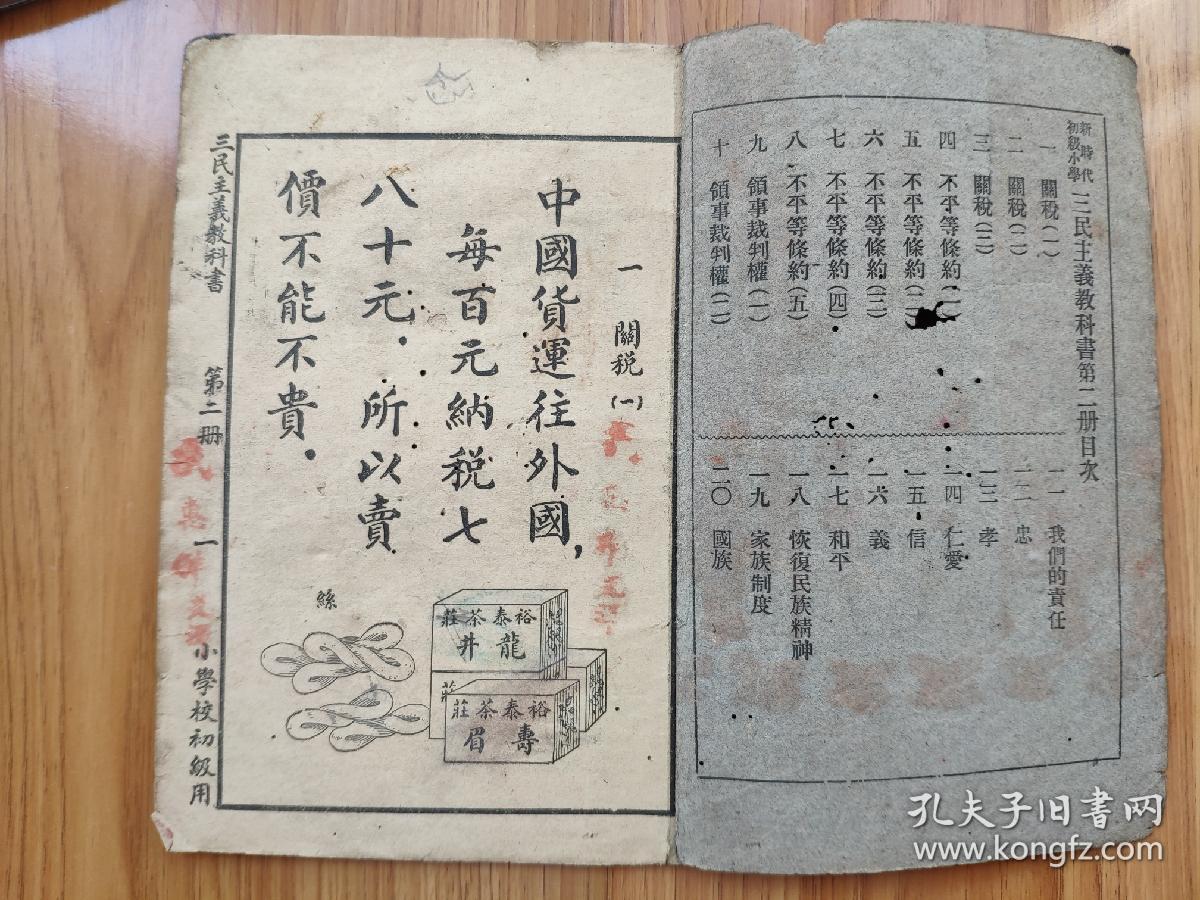 新時代
初級小學
三民主義教科書第二册目次
一 關稅(一)
二 關稅(二)
三 關稅(三)
四 不平等條約(一)
五 不平等條約(二)
六 不平等條約(三)
七 不平等條約(四)
八 不平等條約(五)
九 領事裁判權(一)
十 領事裁判權(二)
一一 我們的責任
一二 忠
一三 孝
一四 仁愛
一五 信
一六 義
一七 和平
一八 恢復民族精神
一九 家族制度
二〇 國族
一 關稅(一)
中國貨運往外國,
每百元納稅七
八十元.所以賣
價不能不貴.
絲
裕泰茶莊
龍井
莊
裕泰茶莊
壽眉
三民主義教科書 第二册 一 小學校初級用
孔夫子旧书网
www.kongfz.com